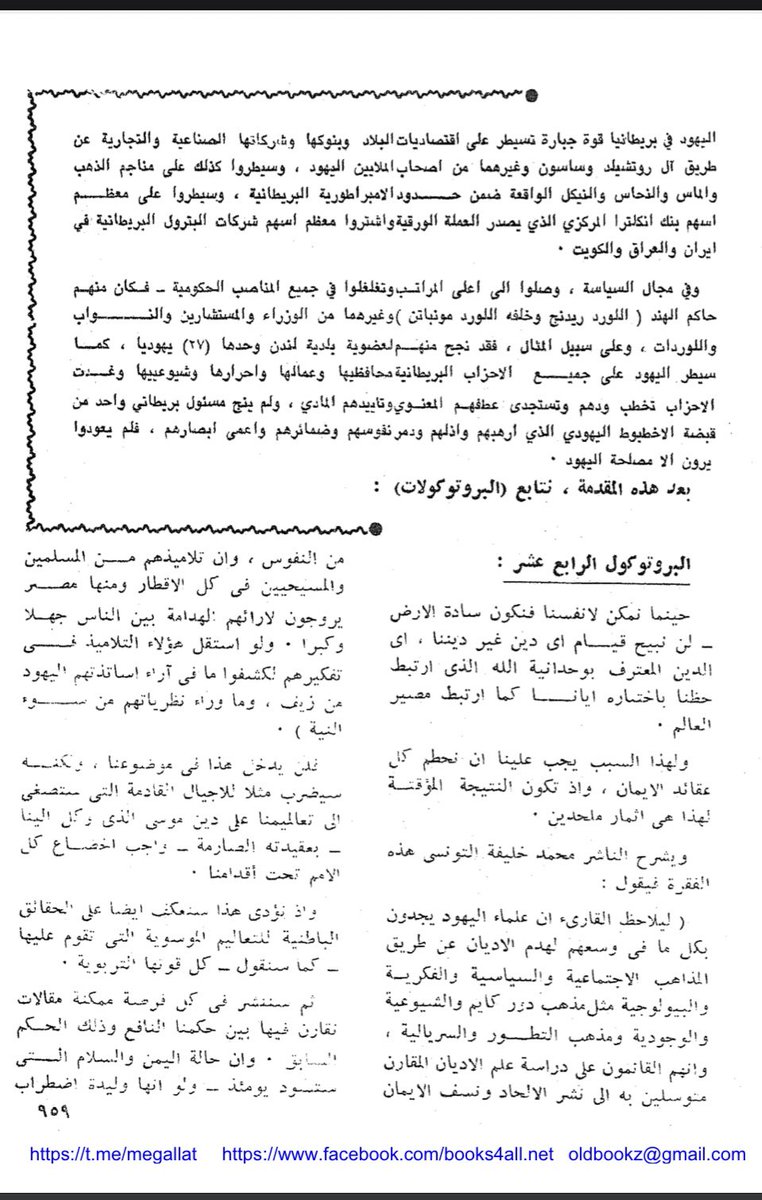 اليهود في بريطانيا قوة جبارة تسيطر على اقتصاديات البلاد وبنوكها وشركاتها الصناعية والتجارية عن
طريق آل روتشيلد وساسون وغيرهما من اصحاب الملايين اليهود ، وسيطروا كذلك على مناجم الذهب
والماس والنحاس والنيكل الواقعة ضمن حـــدود الامبراطورية البريطانية ، وسيطروا على معظـــم
اسهم بنك انكلترا المركزي الذي يصدر العملة الورقية واشتروا معظم اسهم شركات البترول البريطانية في
ايران والعراق والكويت .
وفي مجال السياسة ، وصلوا الى اعلى المراتب وتغلغلوا في جميع المناصب الحكومية ــ فـكان منهـم
حاكم الهند ( اللورد ريدنج وخلفه اللورد مونباتن ) وغيرهما من الوزراء والمستشارين والنــــواب
واللوردات ، وعلى سبيل المثال ، فقد نجح منهـم لعضوية بلدية لندن وحدها (٢٧) يهوديا ، كمـــا
سيطر اليهود على جميـــع الاحزاب البريطانية محافظيها وعمالها واحرارها وشيوعييها وغـدت
الاحزاب تخطب ودهم وتستجدى عطفهـم المعنـوي وتاييدهم المادي ، ولم ينج مسئول بريطاني واحد من
قبضة الاخطبوط اليهودي الذي ارهبهم واذلهم ودمر نفوسهم وضمائرهم واعمى ابصارهم ، فلم يعودوا
يرون الا مصلحة اليهود .
بعد هذه المقدمة ، نتابع (البروتوكولات) :
البروتوكول الرابع عشر :
حينما نمكن لانفسنا فنكون سادة الارض
ــ لن نبيح قيـــام اى دين غير ديننا ، اى
الدين المعترف بوحدانية الله الذى ارتبط
حظنا باختياره ايانــــا كما ارتبط مصير
العالم .
ولهذا السبب يجب علينا ان نحطم كل
عقائد الايمان ، واذ تكون النتيجة المؤقتـة
لهذا هى اثمار ملحدين .
ويشرح الناشر محمد خليفة التونسى هذه
الفقرة فيقول :
( ليلاحظ القارىء ان علماء اليهود يجدون
بكل ما فى وسعهم لهدم الاديان عن طريق
المذاهب الاجتماعية والسياسية والفكريـة
والبيولوجية مثل مذهب دور كايم والشيوعية
والوجودية ومذهب التطـور والسريالية ،
وانهم القائمون على دراسة علم الاديان المقارن
متوسلين به الى نشر الالحاد ونسف الايمان
من النفوس ، وان تلاميذهم مــن المسلمين
والمسيحيين فى كل الاقطار ومنها مصـــر
يروجون لارائهم الهدامة بين الناس جهـلا
وكبرا . ولو استقل هؤلاء التلاميذ فـــى
تفكيرهم لكشفوا ما فى آراء اساتذتهم اليهود
من زيف ، وما وراء نظرياتهم من ســـوء
النية ) .
فلن يدخل هذا فى موضوعنا ، ولكنـــه
سيضرب مثلا للاجيال القادمة التى ستصغى
الى تعاليمنا على دين موسى الذى وكل الينا
ــ بعقيدته الصارمة ــ واجب اخضـاع كل
الامم تحت أقدامنا .
واذ نؤدى هذا سنعكف ايضا على الحقائق
الباطنية للتعاليم الموسوية التى تقوم عليها
ــ كما سنقول ــ كل قوتها التربوية .
ثم سننشر فى كل فرصة ممكنة مقالات
نقارن فيها بين حكمنا النافع وذلك الحـكم
السابق . وان حالة اليمن والسلام الـــتى
ستسود يومئذ ــ ولو انها وليدة اضطراب
٩٥٩
https://t.me/megallat https://www.facebook.com/books4all.net oldbookz@gmail.com